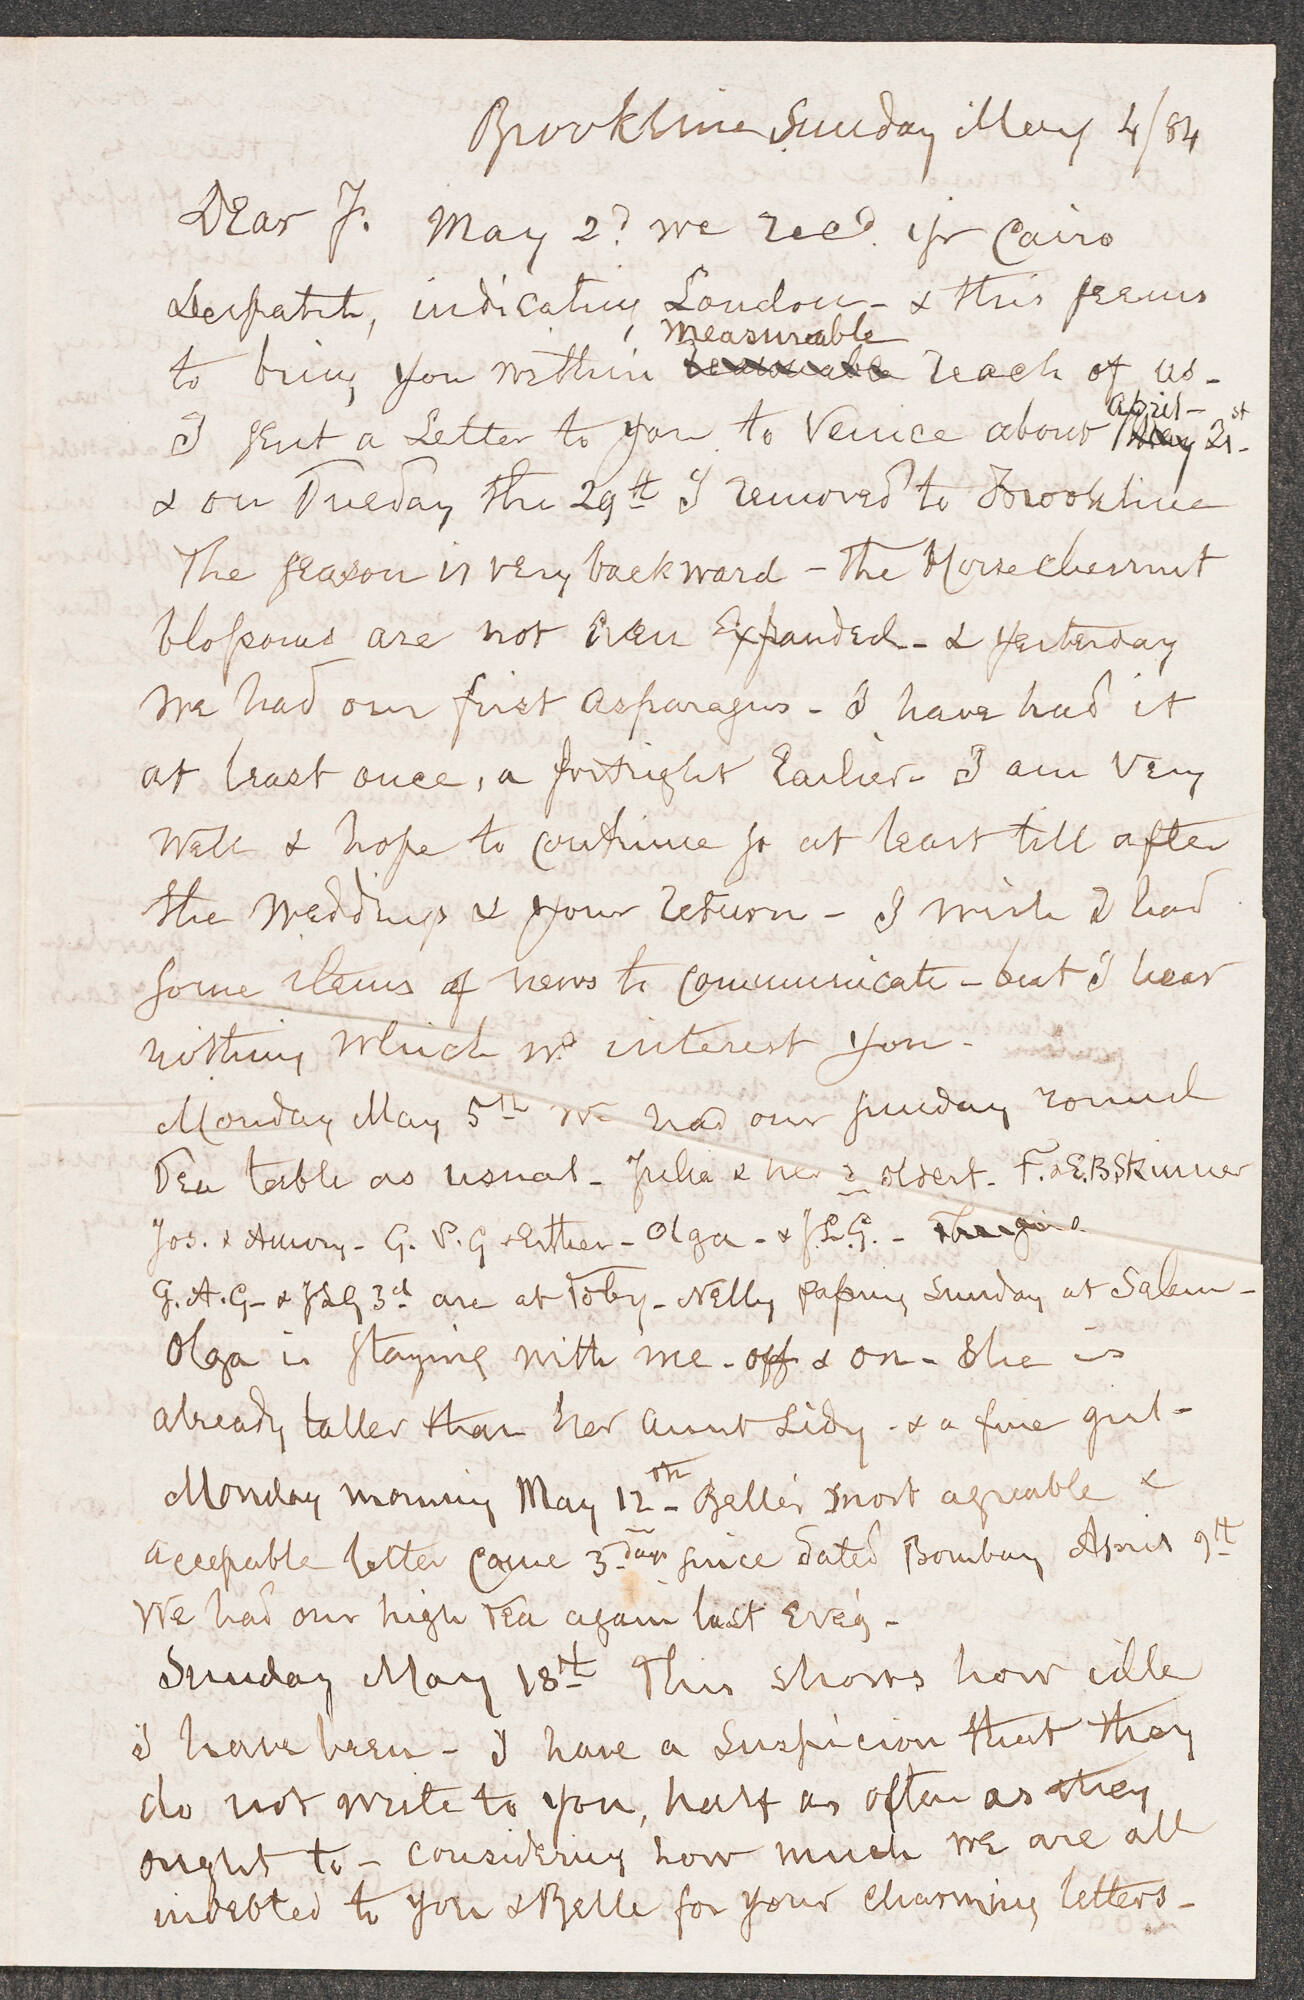 Brookline Sunday May 4/84
Dear J. May 2d. we recd. yr Cairo
despatch, indicating London - & this seems
measurable
to bring you within reasonable reach of us -
April -
I sent a Letter to you to Venice about May 21st -
& on Tuesday the 29th I removed to Brookline
The season is very backward - the Horsechesnut
blossoms are not even Expanded - & yesterday
we had our first asparagus - I have had it
at least once, a fortnight Earlier - I am very
well & hope to continue so at least till after
the Weddings & your return - I wish I had
some items of news to communicate - but I hear
nothing which wd interest you -
Monday May 5th We had our Sunday round
Tea table as usual - Julia & her 2 oldest - F. & E. B. Skinner
Jos. & Amory - G. P. G & Esther - Olga - & J.L.G. -
G. A. G - & JLG 3d are at Toby - Nelly passing Sunday at Salem -
Olga is staying with me - off & on - She is
already taller than her Aunt Lidy - & a fine girl -
Monday morning May 12th - Belle's most agreable &
acceptable letter came 3 days since dated Bombay April 9th
We had our high Tea again last Eve'g -
Sunday May 18th This shows how idle
I have been - I have a suspicion that they
do not write to you, half as often as they
ought to - considering how much we are all
indebted to you & Belle for your charming letters -